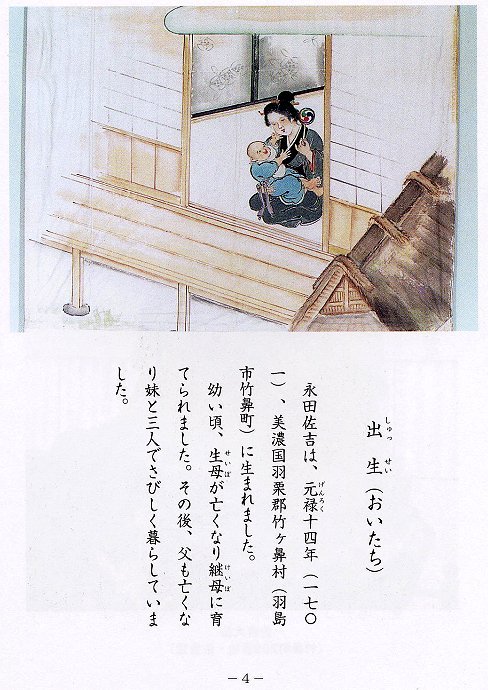 出生（おいたち）
永田佐吉は、元禄十四年（一七〇
一）、美濃国羽栗郡竹ヶ鼻村（羽島
市竹鼻町）に生まれました。
幼い頃、生母が亡くなり継母に育
てられました。その後、父も亡くな
り妹と三人でさびしく暮らしていま
した。
－4－